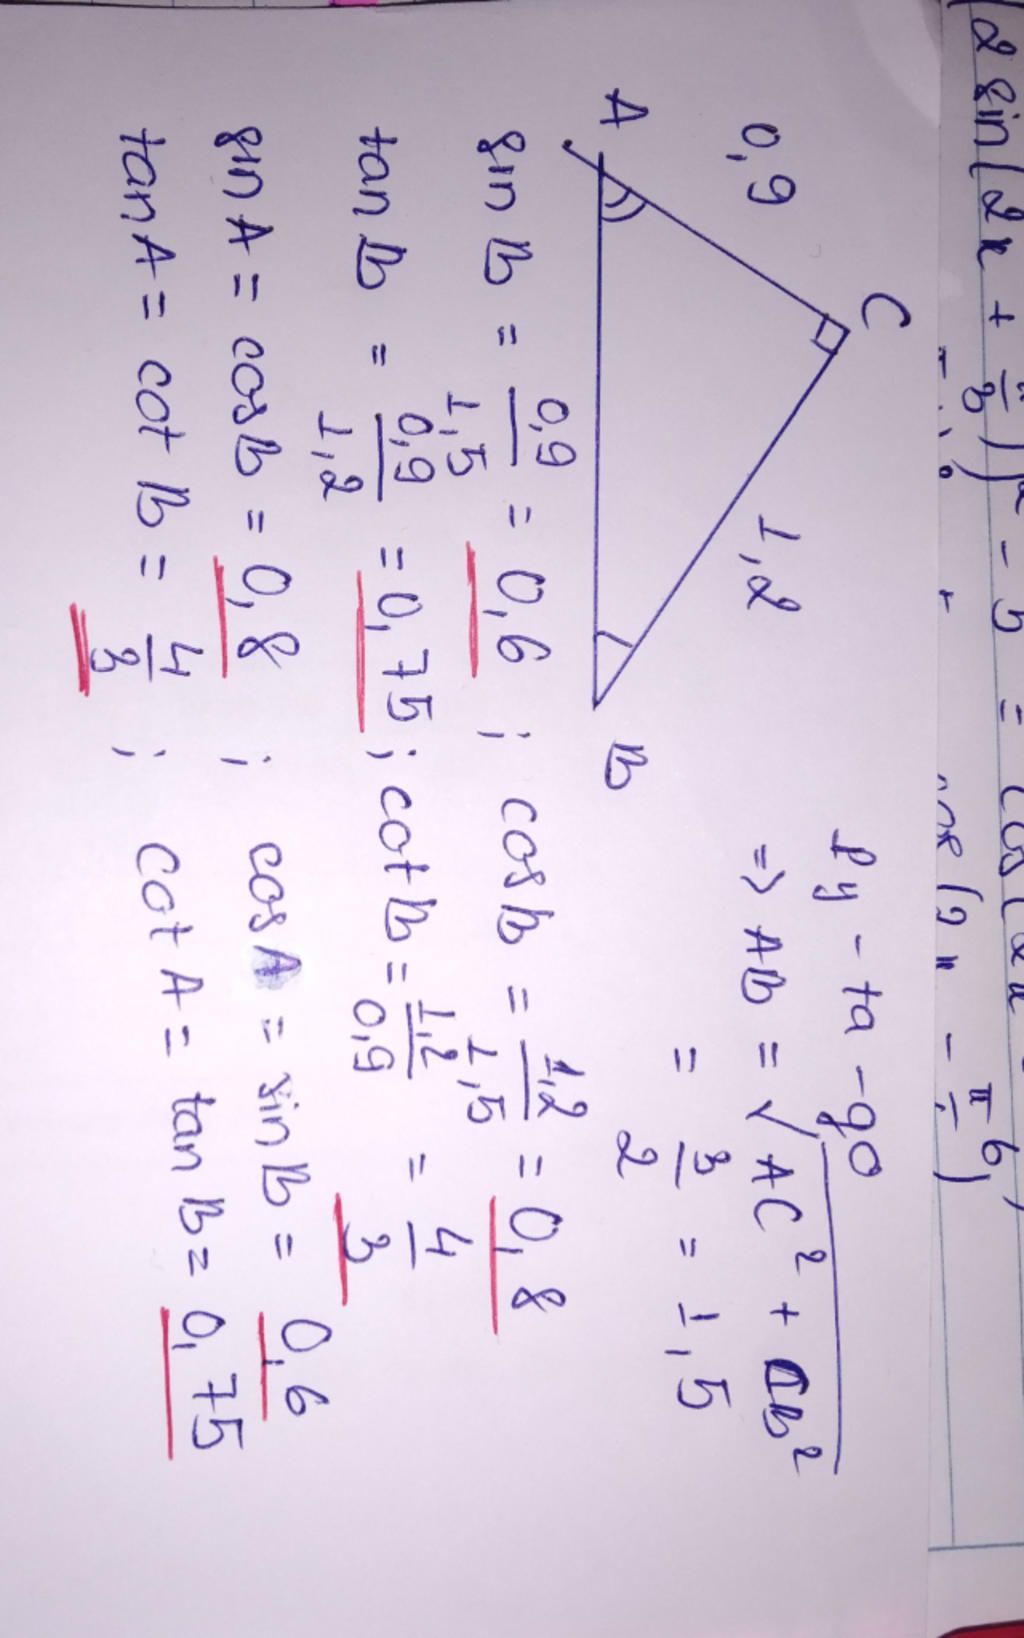 C
0,9
1,2
A
B
Py-ta-go
=> AB = √AC² + CB²
= 3/2 = 1,5
sin B = 0,9/1,5 = 0,6 ; cos B = 1,2/1,5 = 0,8
tan B = 0,9/1,2 = 0,75 ; cot B = 1,2/0,9 = 4/3
sin A = cos B = 0,8 ; cos A = sin B = 0,6
tan A = cot B = 4/3 ; cot A = tan B = 0,75